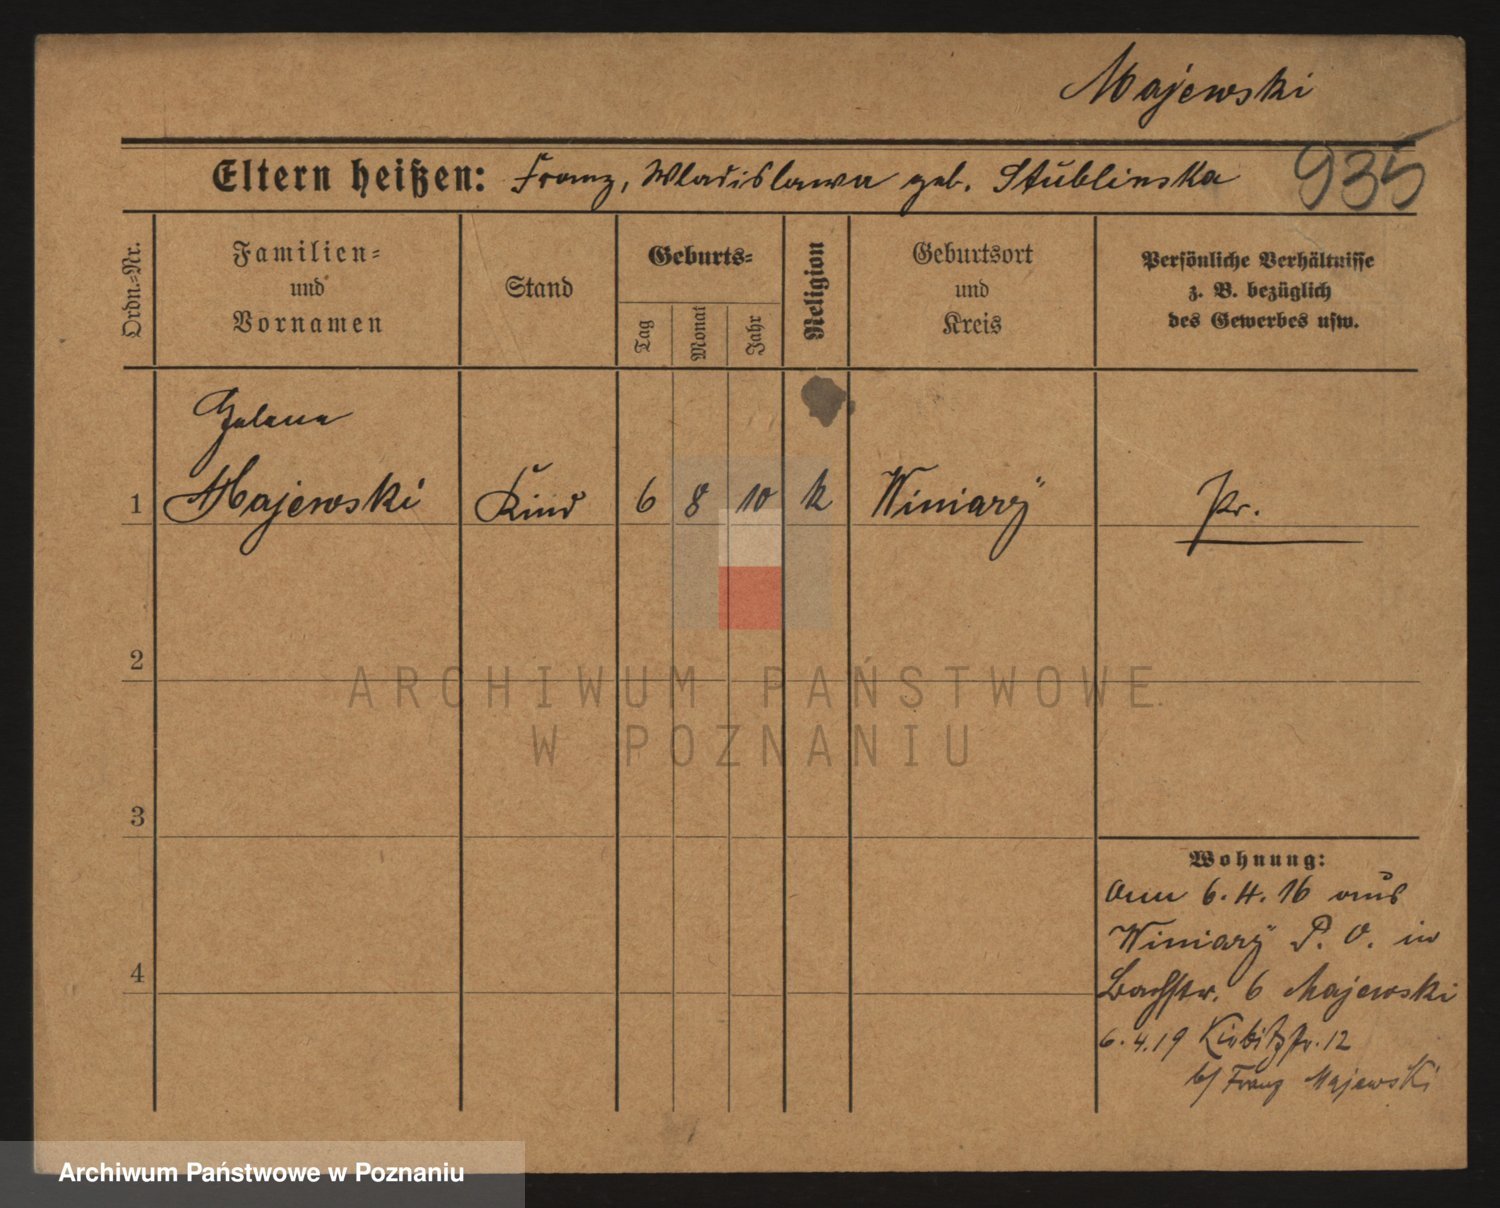 Majewski
935
Eltern heißen: Franz, Wladislawa geb. Stublinska
Ordn.=Nr.
Familien=
und
Vornamen
Stand
Geburts=
Tag
Monat
Jahr
Religion
Geburtsort
und
Kreis
Persönliche Verhältnisse
z. B. bezüglich
des Gewerbes usw.
Helene
1 Majewski Kind 6 8 10 k Winiary Pr.
2
3
4
Wohnung:
6.4.16 aus
Winiary P. O. in
Bachstr. 6 Majewski
6.4.19 12
b/ Franz Majewski
ARCHIWUM PAŃSTWOWE
W POZNANIU
Archiwum Państwowe w Poznaniu